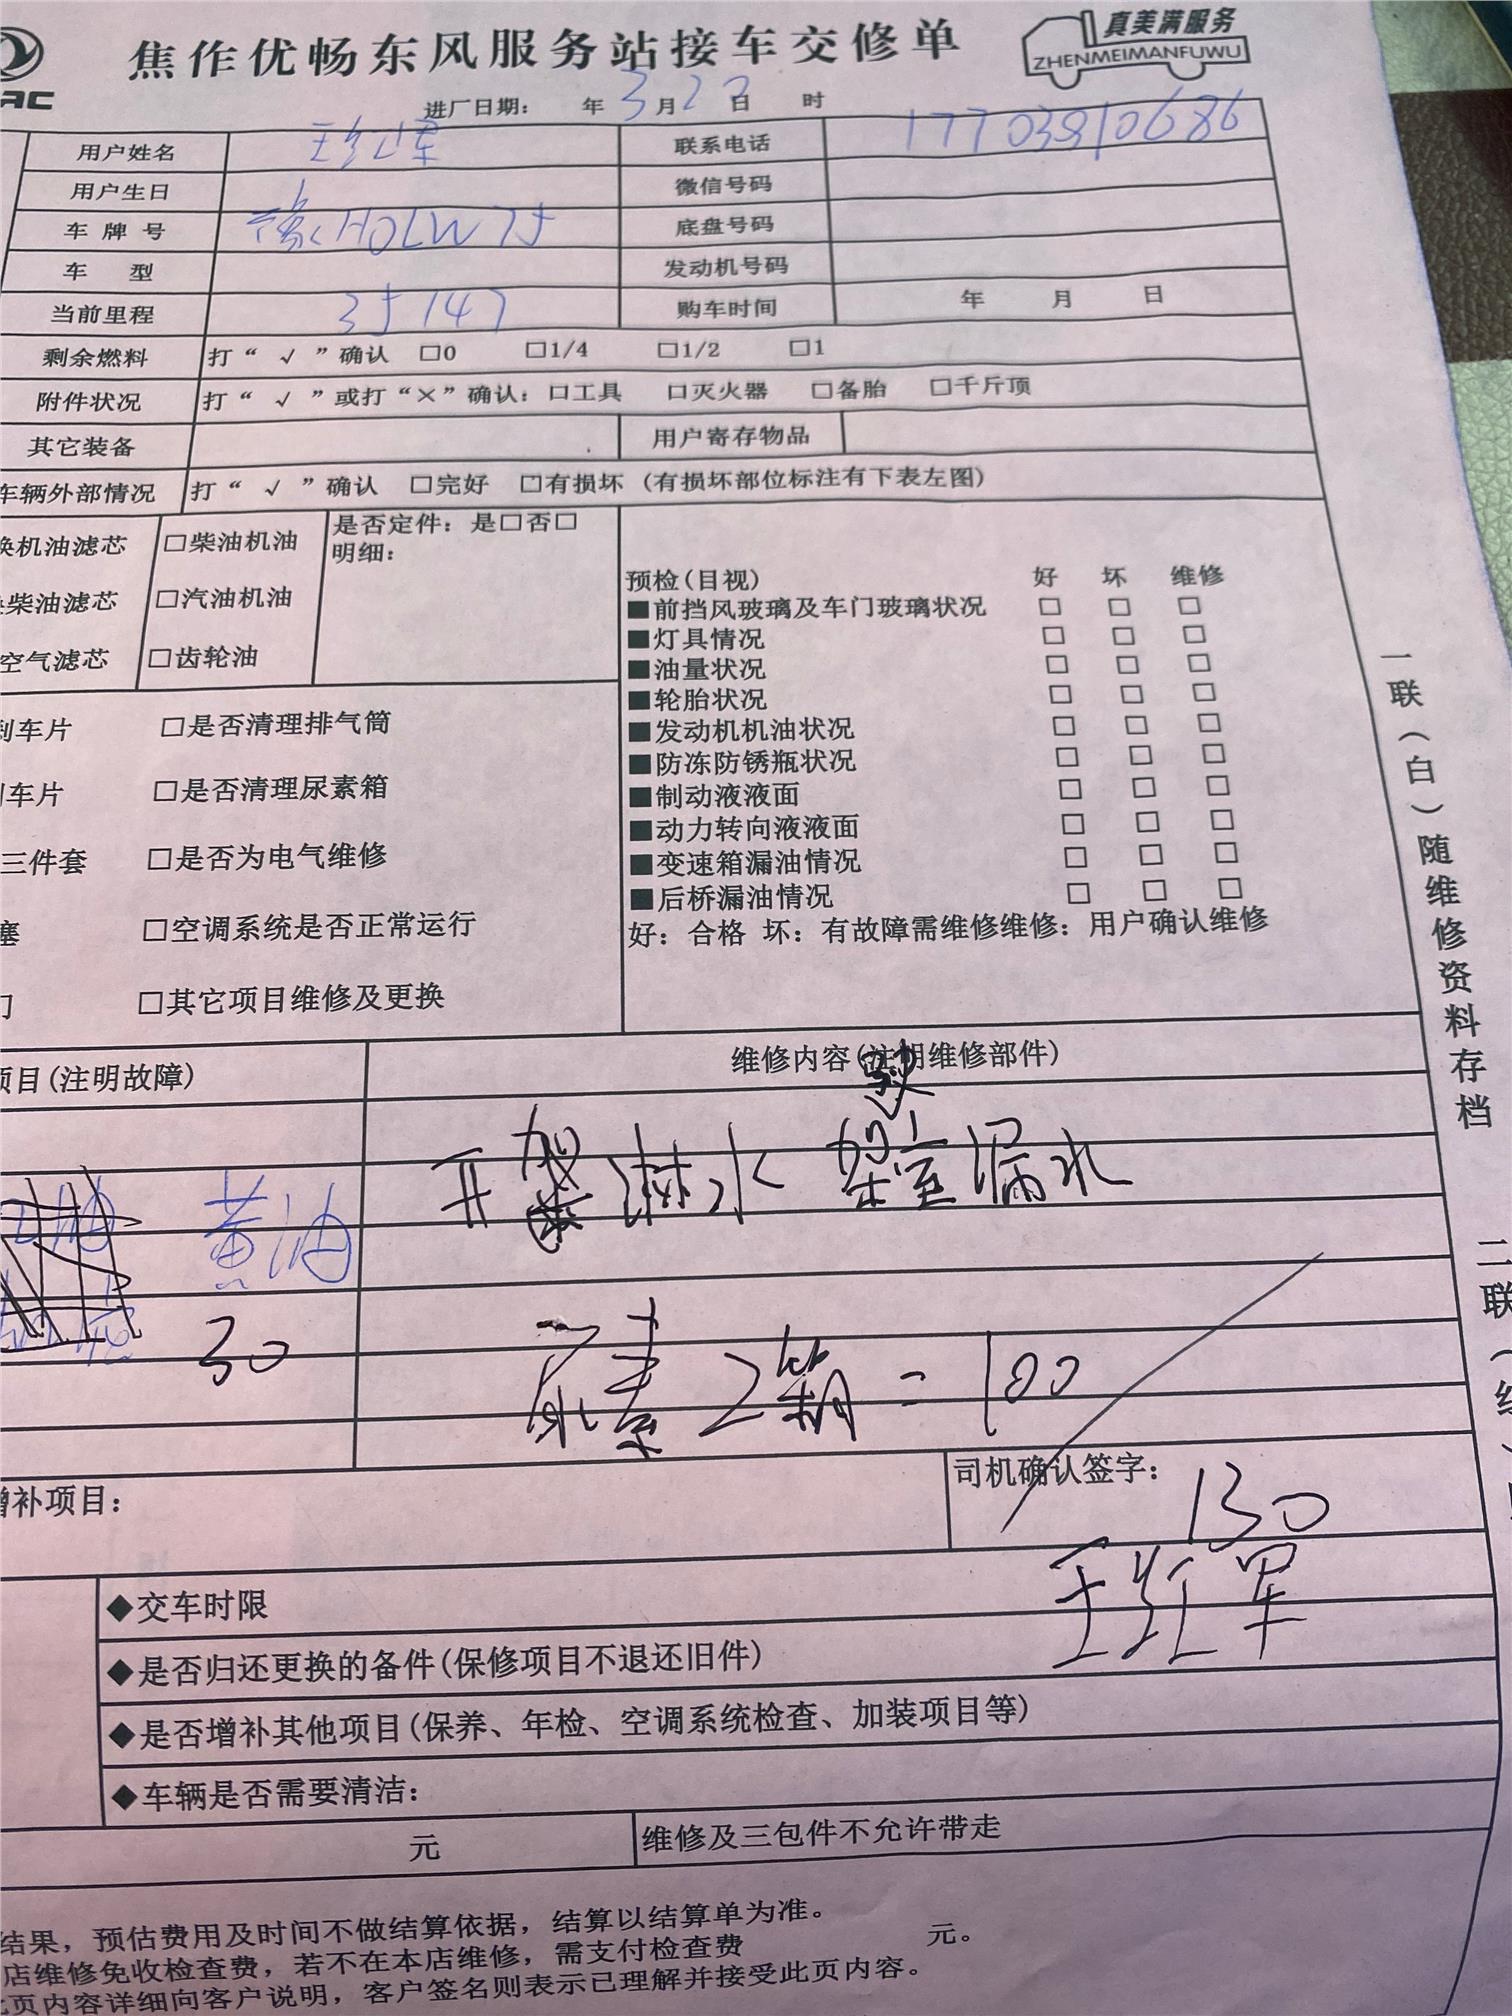 焦作优畅东风服务站接车交修单
真美满服务
ZHENMEIMANFUWU
进厂日期: 年 3月23日 时
用户姓名 王红军 联系电话 17703910686
用户生日 微信号码
车牌号 豫H0LW75 底盘号码
车 型 发动机号码
当前里程 35147 购车时间 年 月 日
剩余燃料 打“√”确认 □0 □1/4 □1/2 □1
附件状况 打“√”或打“×”确认: □工具 □灭火器 □备胎 □千斤顶
其它装备 用户寄存物品
车辆外部情况 打“√”确认 □完好 □有损坏 (有损坏部位标注有下表左图)
换机油滤芯 □柴油机油 是否定件: 是□否□
明细:
柴油滤芯 □汽油机油
空气滤芯 □齿轮油
预检(目视) 好 坏 维修
■前挡风玻璃及车门玻璃状况 □ □ □
■灯具情况 □ □ □
■油量状况 □ □ □
■轮胎状况 □ □ □
■发动机机油状况 □ □ □
■防冻防锈瓶状况 □ □ □
■制动液液面 □ □ □
■动力转向液液面 □ □ □
■变速箱漏油情况 □ □ □
■后桥漏油情况 □ □ □
好: 合格 坏: 有故障需维修维修: 用户确认维修
刹车片 □是否清理排气筒
车片 □是否清理尿素箱
三件套 □是否为电气维修
塞 □空调系统是否正常运行
门 □其它项目维修及更换
项目(注明故障) 维修内容(注明维修部件)
开驾淋水 驾室漏水
黄油
30
尿素2箱=100
增补项目: 司机确认签字:
130
王红军
◆交车时限
◆是否归还更换的备件(保修项目不退还旧件)
◆是否增补其他项目(保养、年检、空调系统检查、加装项目等)
◆车辆是否需要清洁:
元 维修及三包件不允许带走
结果, 预估费用及时间不做结算依据, 结算以结算单为准。
店维修免收检查费, 若不在本店维修, 需支付检查费 元。
页内容详细向客户说明, 客户签名则表示已理解并接受此页内容。
一联(白)随维修资料存档
二联(